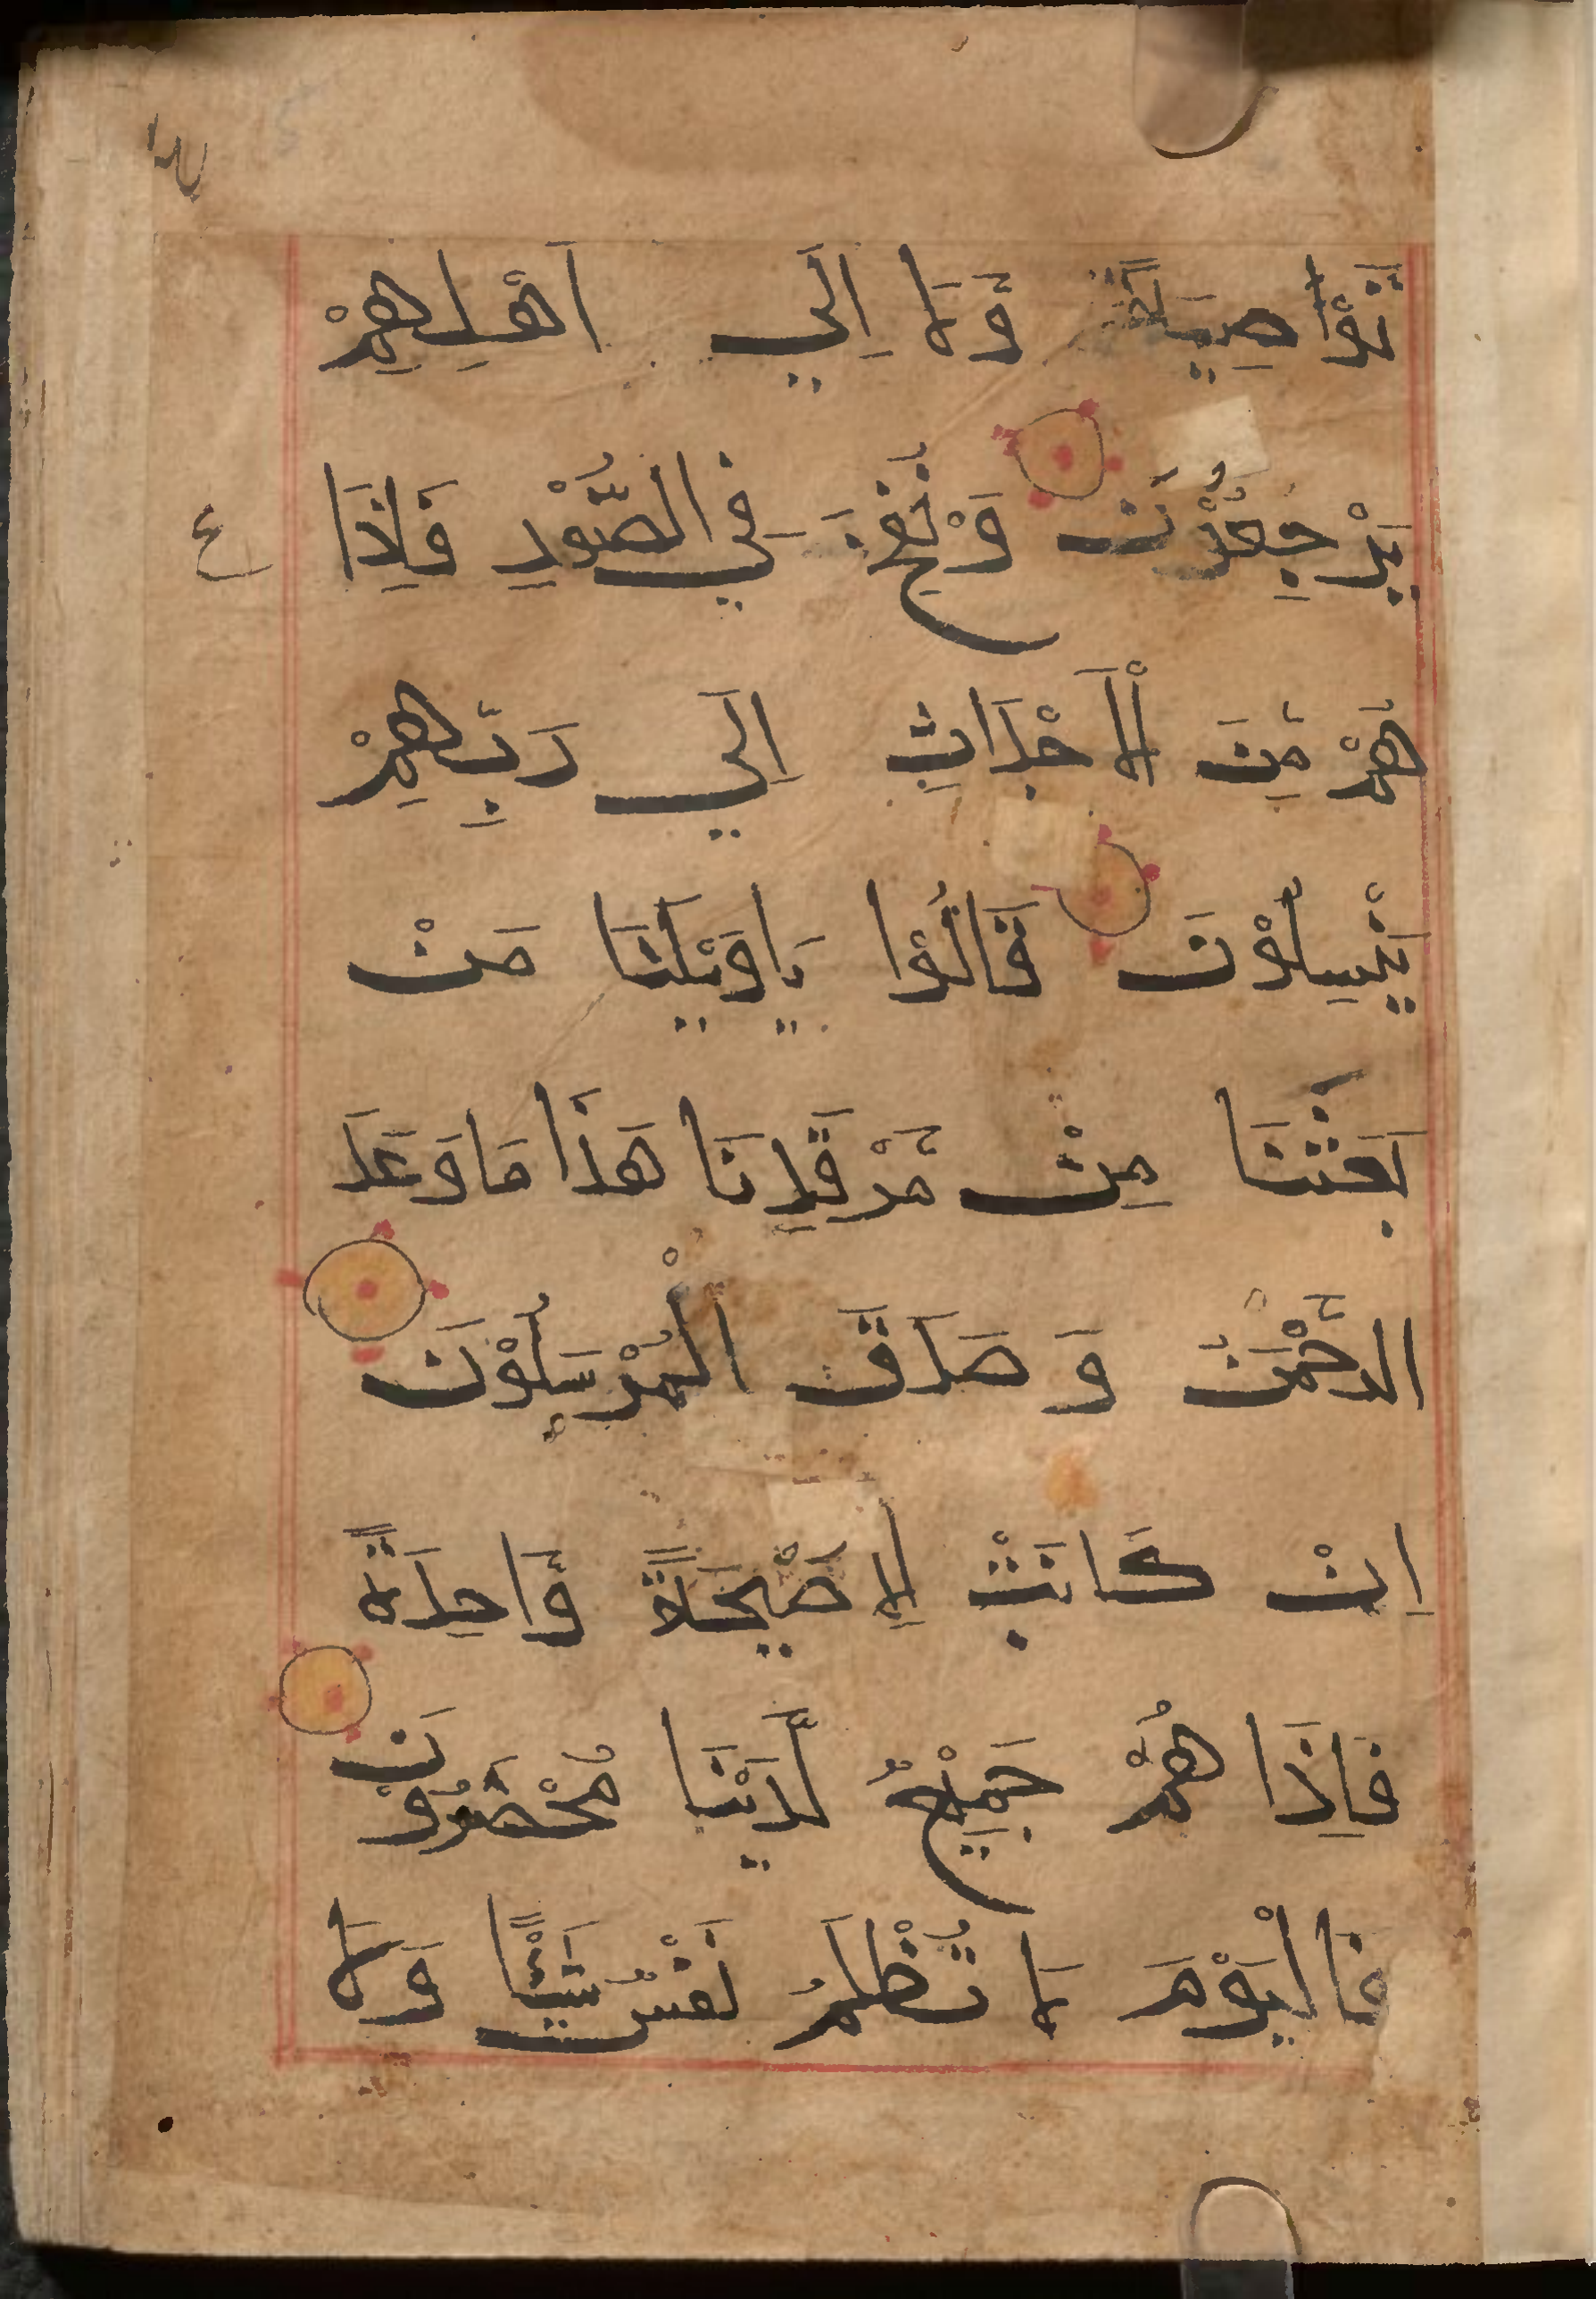 تَوْصِيَةً وَّلَا اِلَي اَهْلِهِمْ
يَرْجِعُوْنَ وَنُفِخَ فِي الصُّوْرِ فَاِذَا
ع
هُمْ مِّنَ الْاَجْدَاثِ اِلَي رَبِّهِمْ
يَنْسِلُوْنَ قَالُوْا يَاوَيْلَنَا مَنْ
بَعَثَنَا مِنْ مَّرْقَدِنَا هَذَا مَا وَعَدَ
الرَّحْمَنُ وَ صَدَقَ الْمُرْسَلُوْنَ
اِنْ كَانَتْ اِلَّا صَيْحَةً وَّاحِدَةً
فَاِذَا هُمْ جَمِيْعٌ لَّدَيْنَا مُحْضَرُوْنَ
فَالْيَوْمَ لَا تُظْلَمُ نَفْسٌ شَيْئًا وَلَا